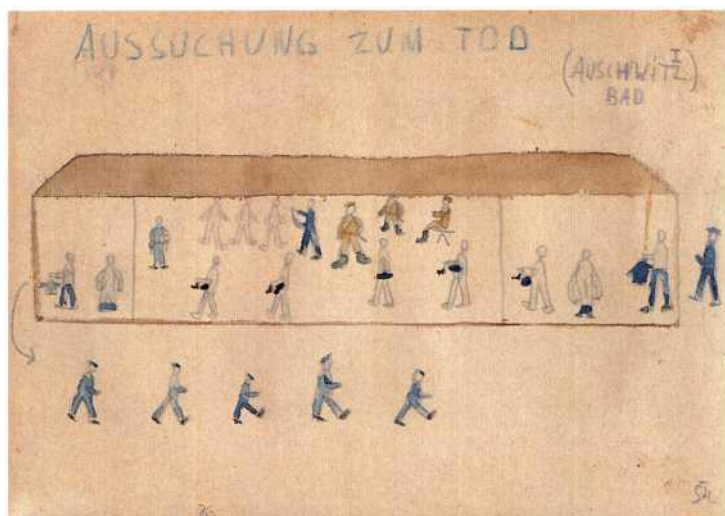 AUSSUCHUNG ZUM TOD
(AUSCHWITZ I)
BAD